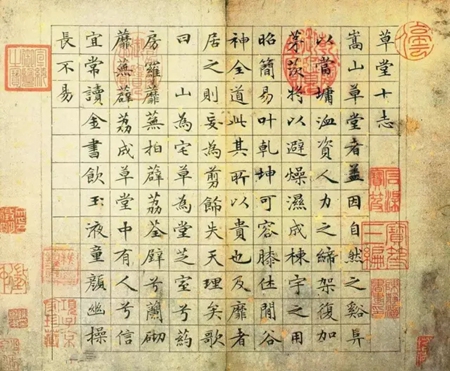 草堂十志
嵩山草堂者盖因自然之谿阜
以當墉洫資人力之締架復加
茅茨將以避燥濕成棟宇之用
昭簡易叶乾坤可容膝休閒谷
神全道此其所以貴也及靡者
居之則妄為剪餙失天理矣歌
曰 山為宅草為堂芝室兮葯
房羅蘼蕪柏薜荔荃壁兮蘭砌
蘼蕪薜荔成草堂中有人兮信
宜常讀金書飲玉液童顏幽操
長不易